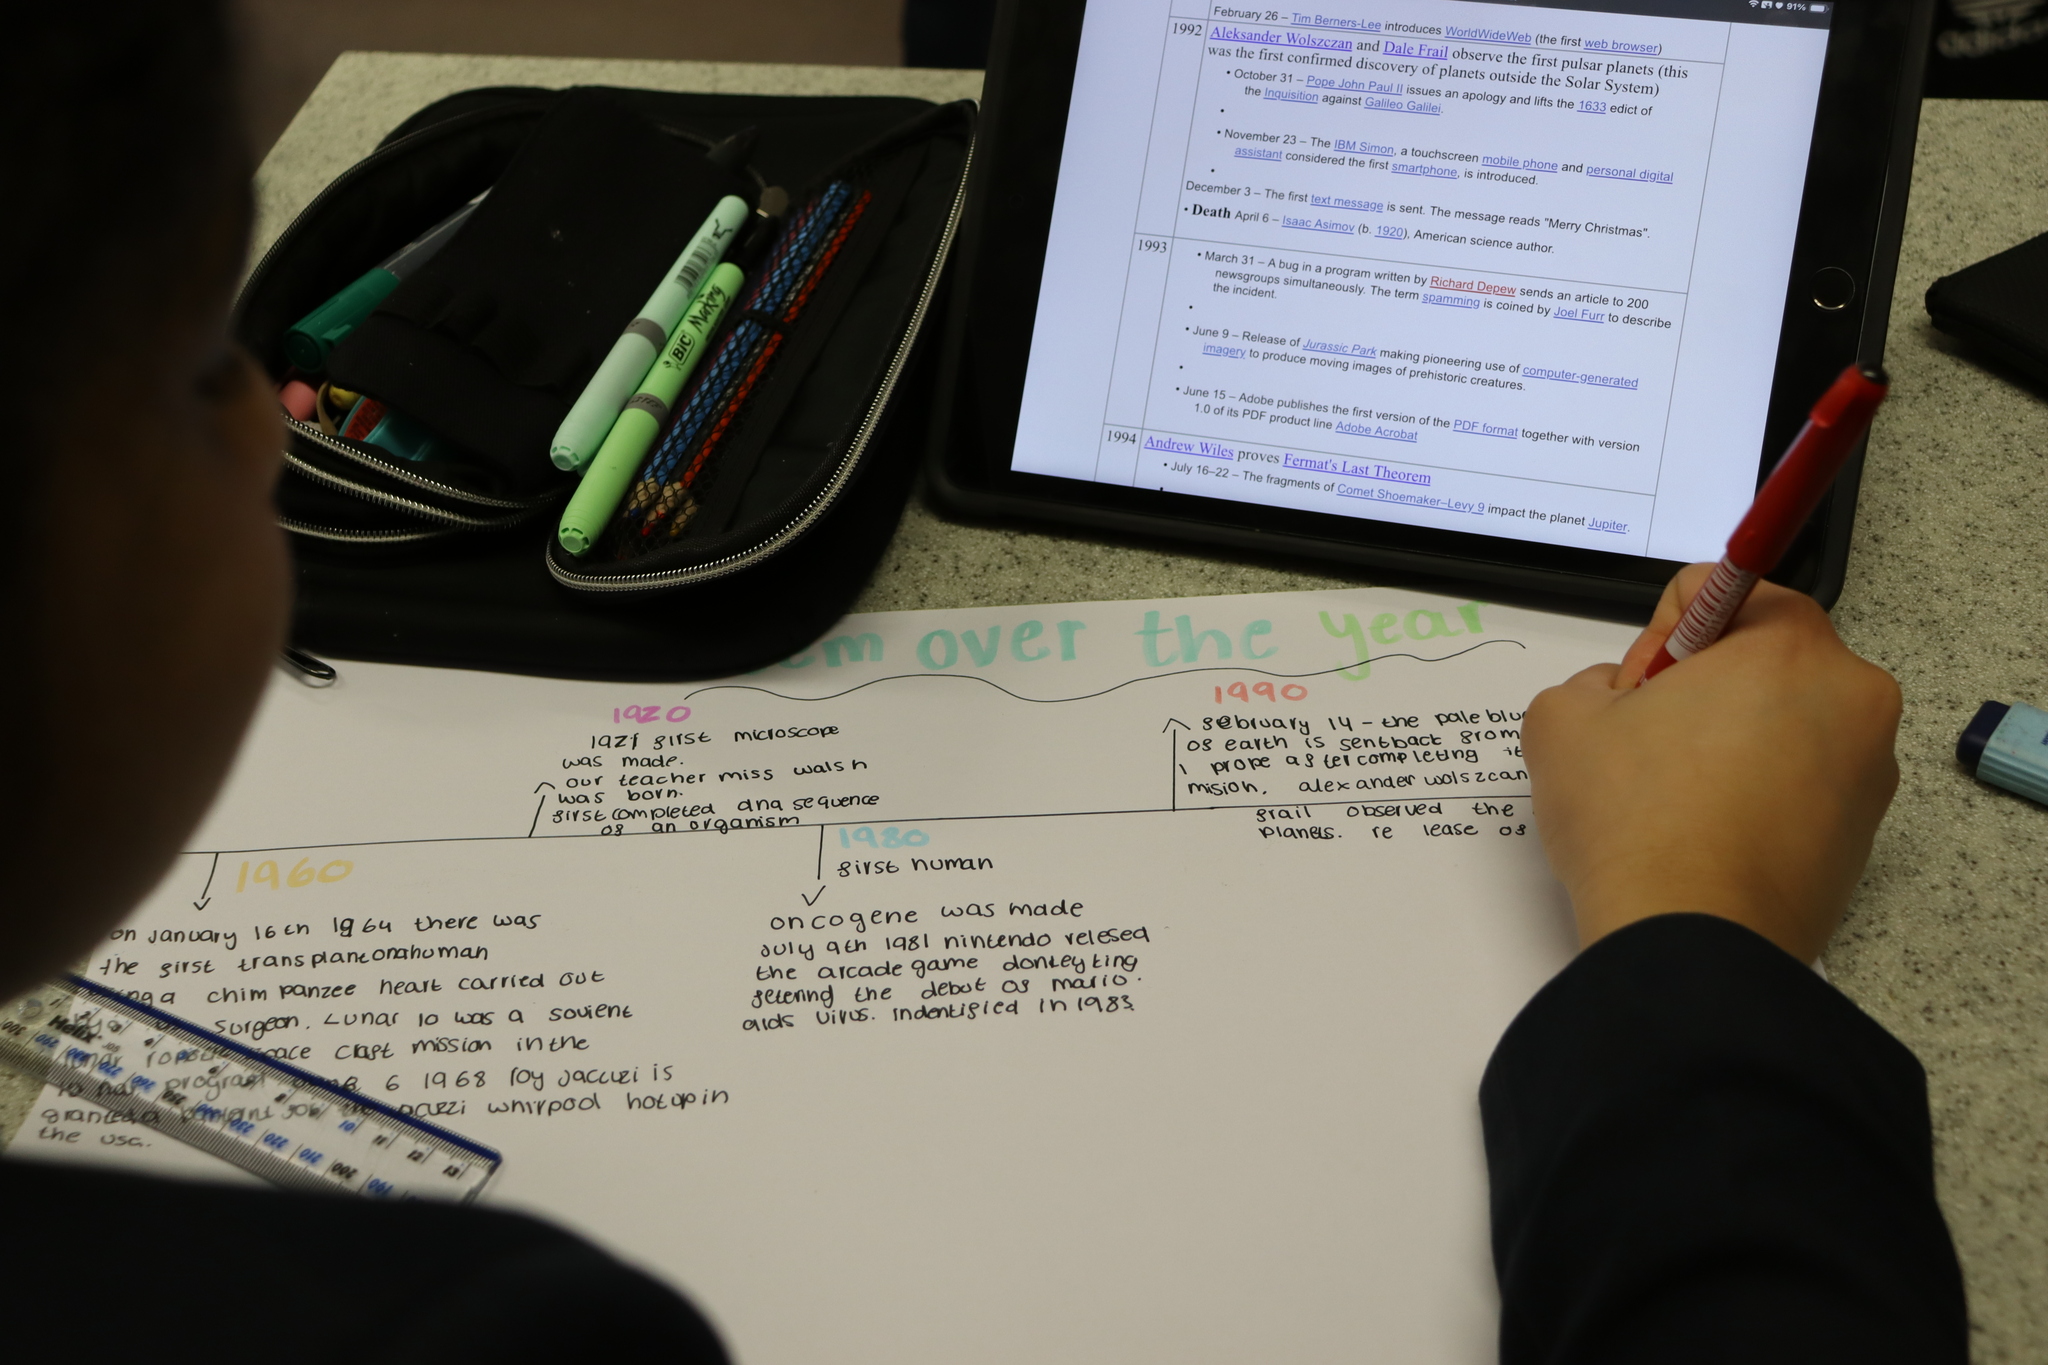 91%
February 26 – Tim Berners-Lee introduces WorldWideWeb (the first web browser)
1992
Aleksander Wolszczan and Dale Frail observe the first pulsar planets (this
was the first confirmed discovery of planets outside the Solar System)
• October 31 – Pope John Paul II issues an apology and lifts the 1633 edict of
the Inquisition against Galileo Galilei.
•
• November 23 – The IBM Simon, a touchscreen mobile phone and personal digital
assistant considered the first smartphone, is introduced.
•
December 3 – The first text message is sent. The message reads "Merry Christmas".
• Death April 6 – Isaac Asimov (b. 1920), American science author.
1993
• March 31 – A bug in a program written by Richard Depew sends an article to 200
newsgroups simultaneously. The term spamming is coined by Joel Furr to describe
the incident.
•
• June 9 – Release of Jurassic Park making pioneering use of computer-generated
imagery to produce moving images of prehistoric creatures.
•
• June 15 – Adobe publishes the first version of the PDF format together with version
1.0 of its PDF product line Adobe Acrobat
1994
Andrew Wiles proves Fermat's Last Theorem
• July 16–22 – The fragments of Comet Shoemaker–Levy 9 impact the planet Jupiter.
BIC Marking
em over the year
1920
1921 first microscope
was made.
our teacher miss walsh
was born.
first completed dna sequence
of an organism
1990
february 14 – the pale blue
of earth is sentback from
1 prope after completing it
mision. alexander wolszcan
frail observed the
planets. re lease of
1960
on January 16th 1964 there was
the first transplantonahuman
a chimpanzee heart carried out
surgeon. Lunar 10 was a sovient
space craft mission in the
program 6 1968 roy Jaccuzi is
granted whirpool hotup in
the usa.
1980
first human
oncogene was made
July 9th 1981 nintendo relesed
the arcade game donkeyking
fetering the debut of mario.
aids virus. indentified in 1983
Helix
10 11 12 13